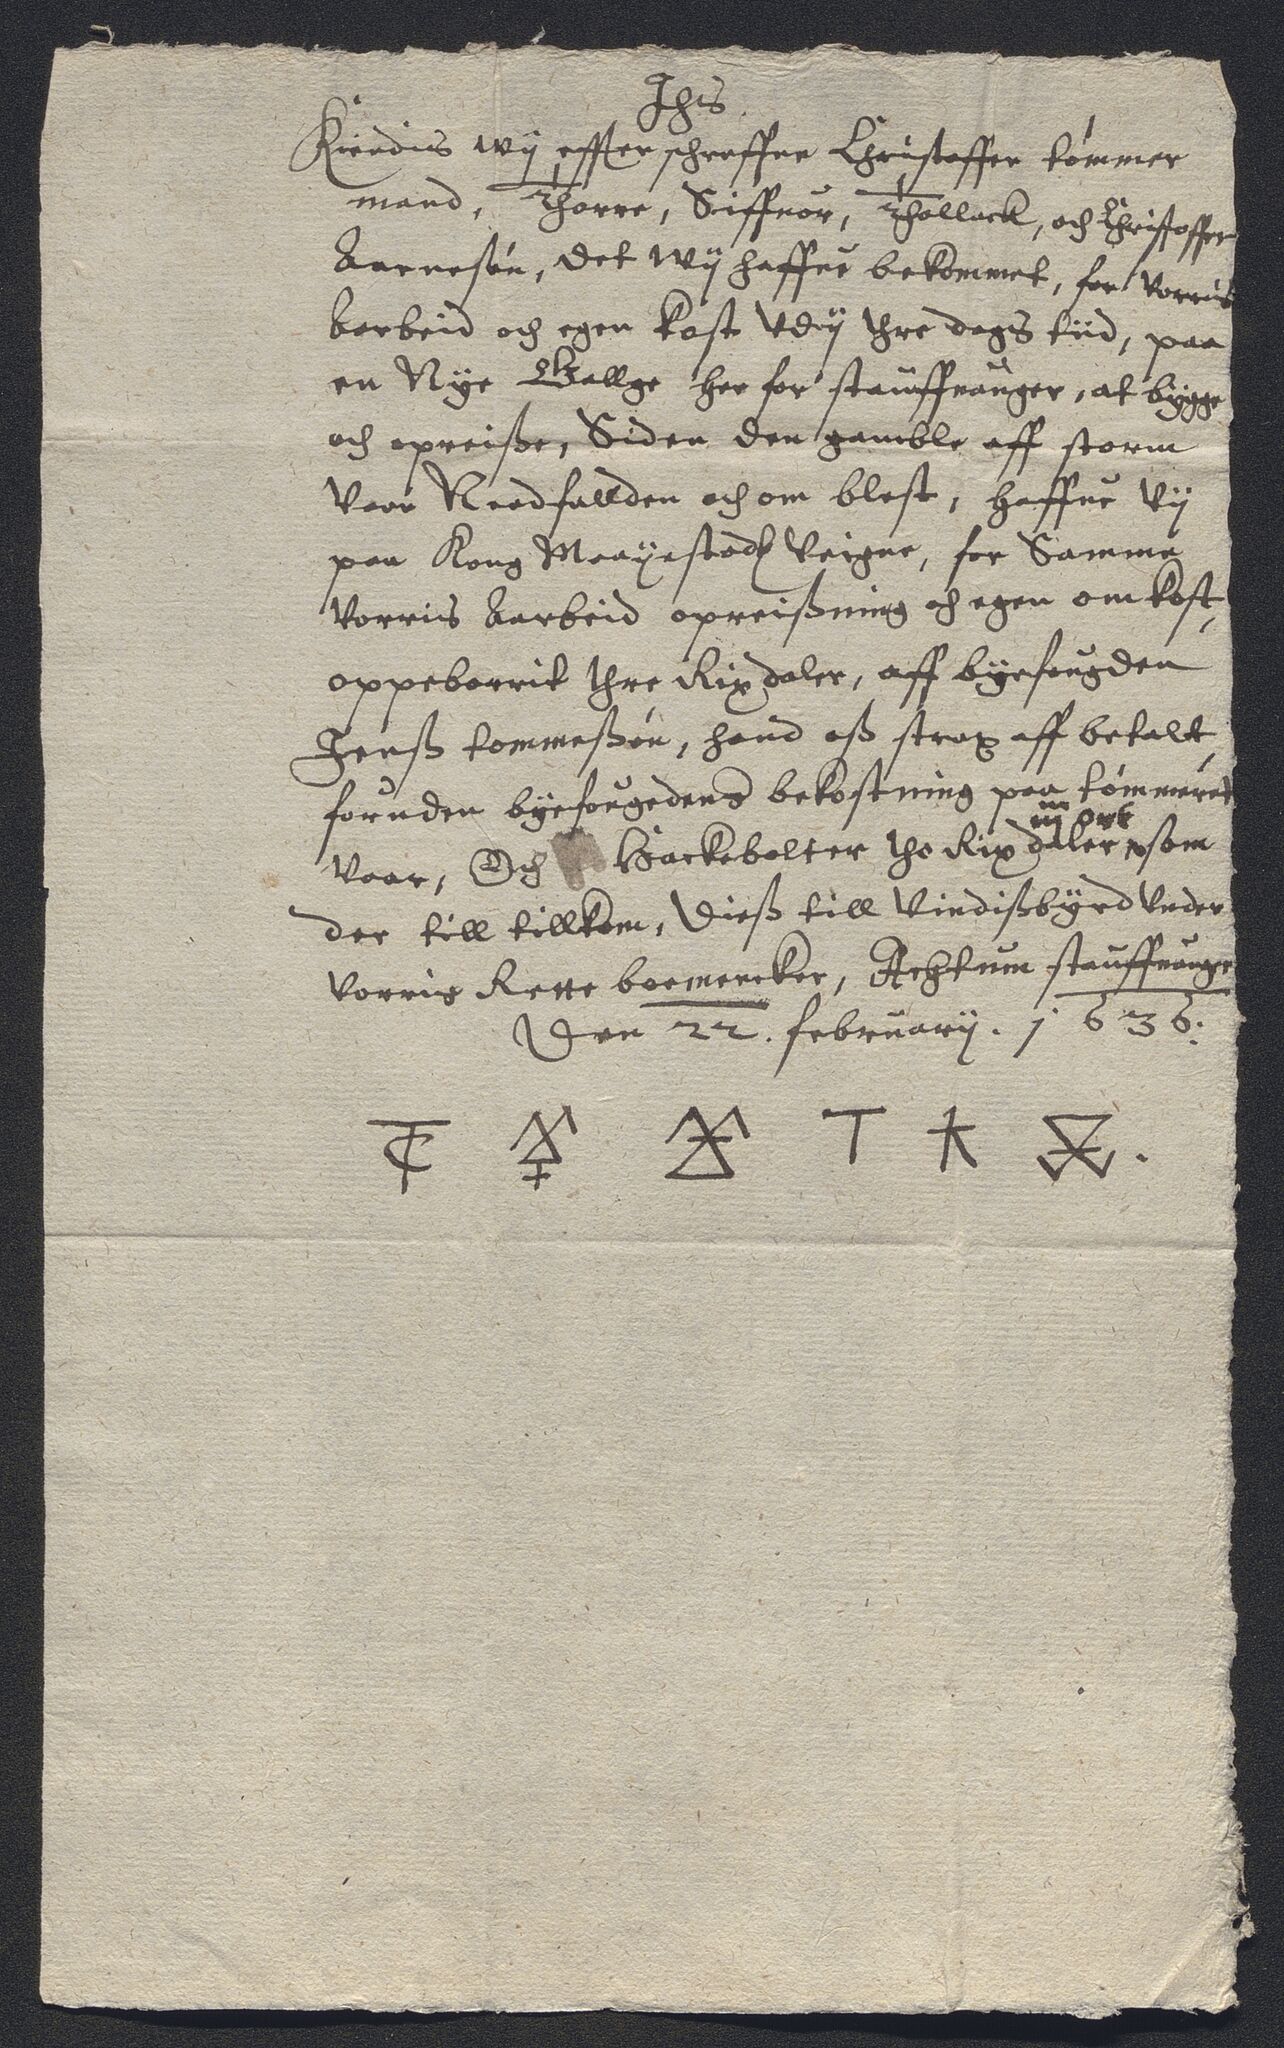 Jhs
Kiendis wij effter schreffne Christoffer tømmer
mand, Thorre, Siffuor, Thollack, och Christoffer
Aarnesøn, det wij haffue bekommet, for vorris
Aarbeid och egen kost vdij thre dags tiid, paa
en Nye Gallge her for stauffuanger, at bygge
och opreiße, Siden den gamble aff storm
vaar Needfallden och om blest, haffue vij
paa Kong Maayestadz veigne, for Samme
vorris Aarbeid opreißning och egen omkost,
oppeborrit thre Rixdaler, aff byefougden
Jenß tommeßøn, hand oß strax aff betalt,
foruden byefougedens bekostning paa tømmeret
vaar, Och Hackebolter tho Rixdaler som
iij ort
der till tillkom, Dieß till Vindißbyrd vnder
vorris Rette boemercker, Achtum stauffuanger
Den 22. februarij. 1636.